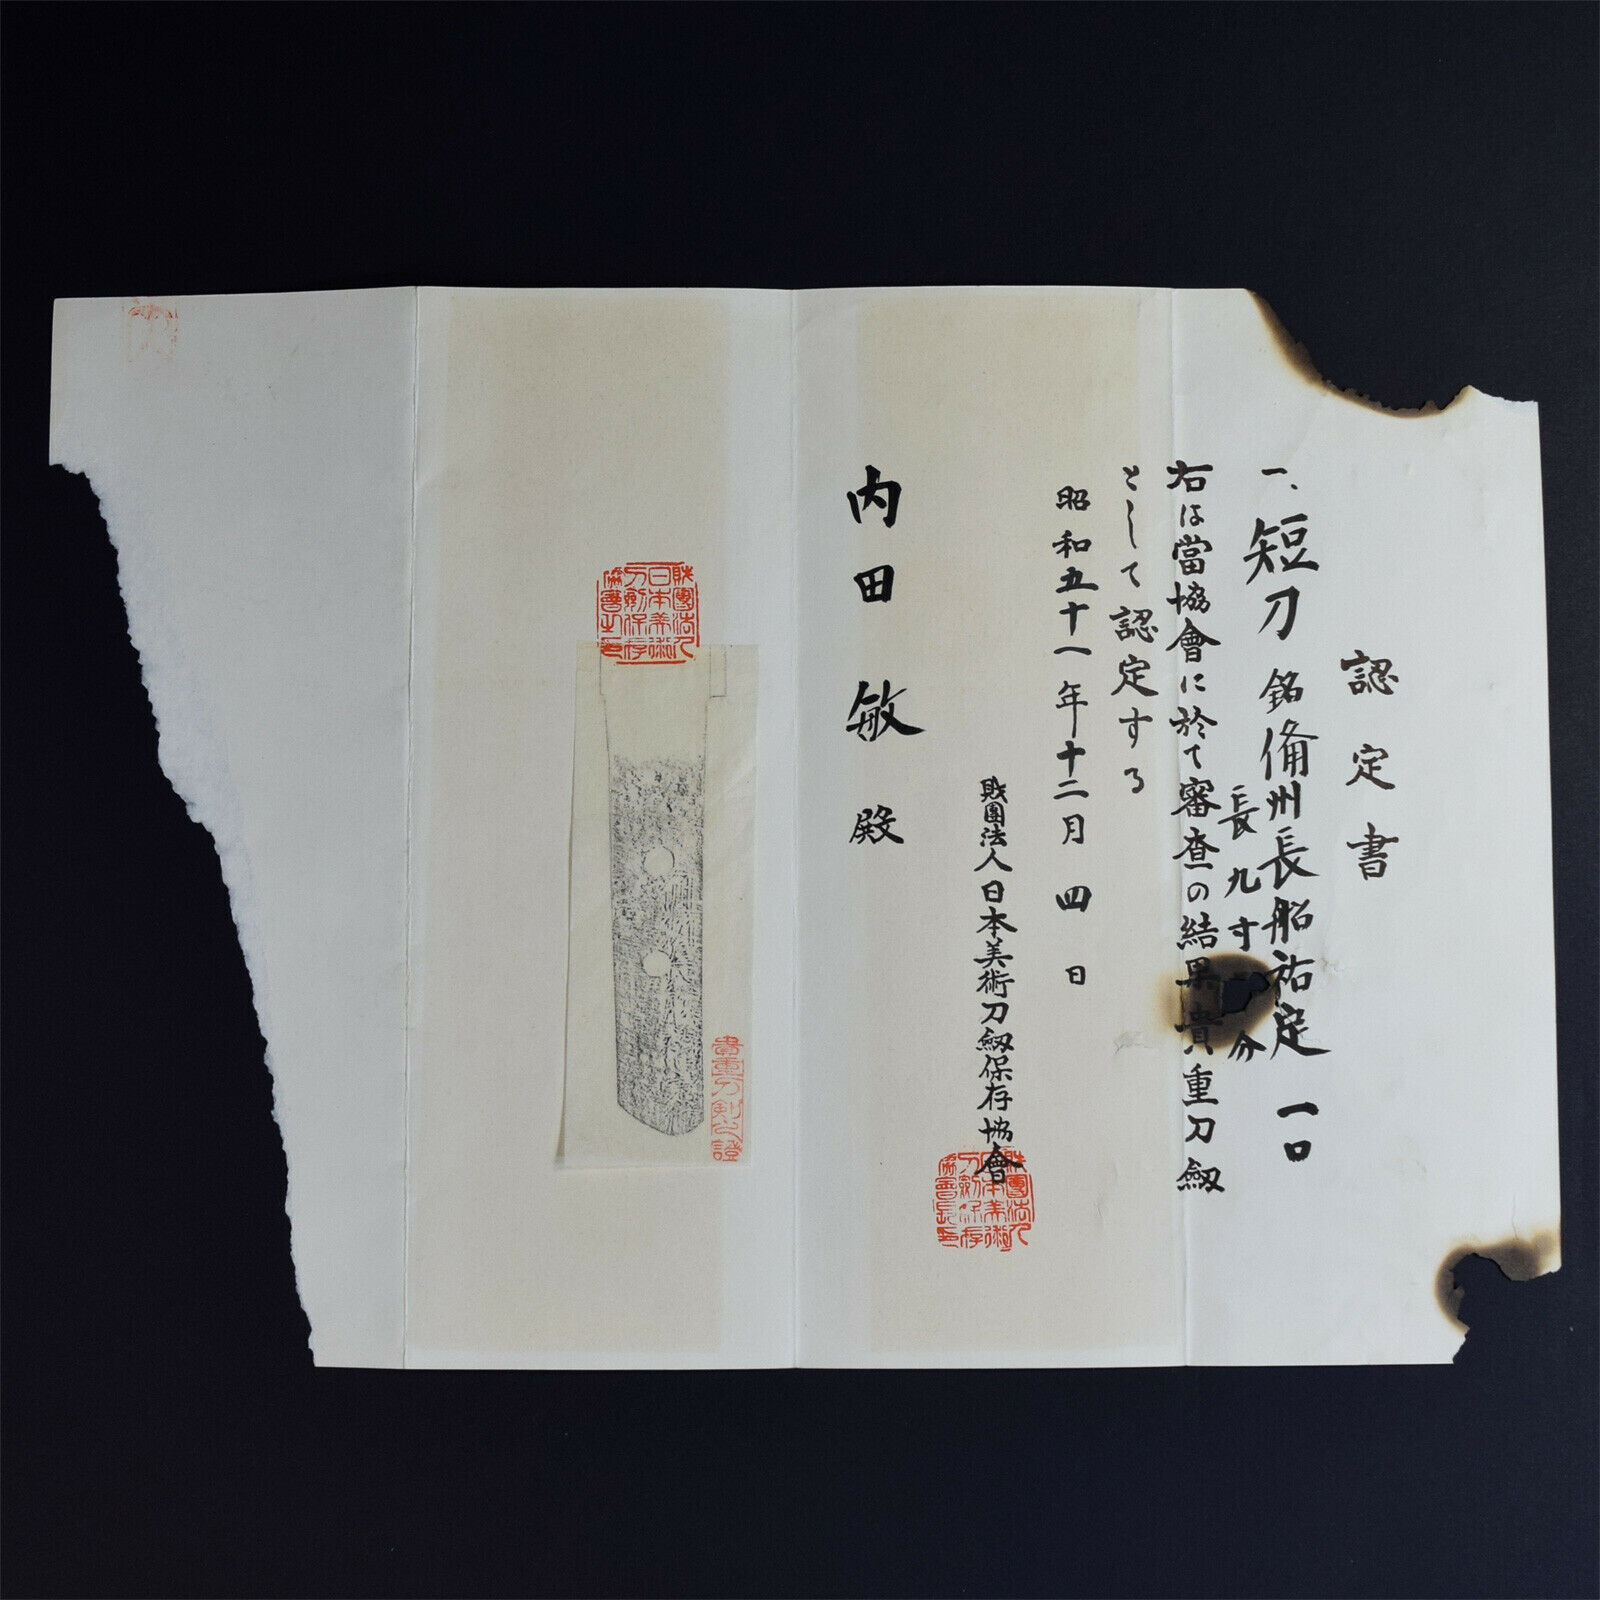 認定書
一、短刀 銘 備州長船祐定 一口
長九寸 分
右は當協會に於て審査の結果貴重刀劔
として認定する
昭和五十一年十二月四日
財團法人日本美術刀劔保存協會
財團法人日本美術刀劍保存協會長印
内田敏殿
財團法人日本美術刀劍保存協會之印
貴重刀剣之證